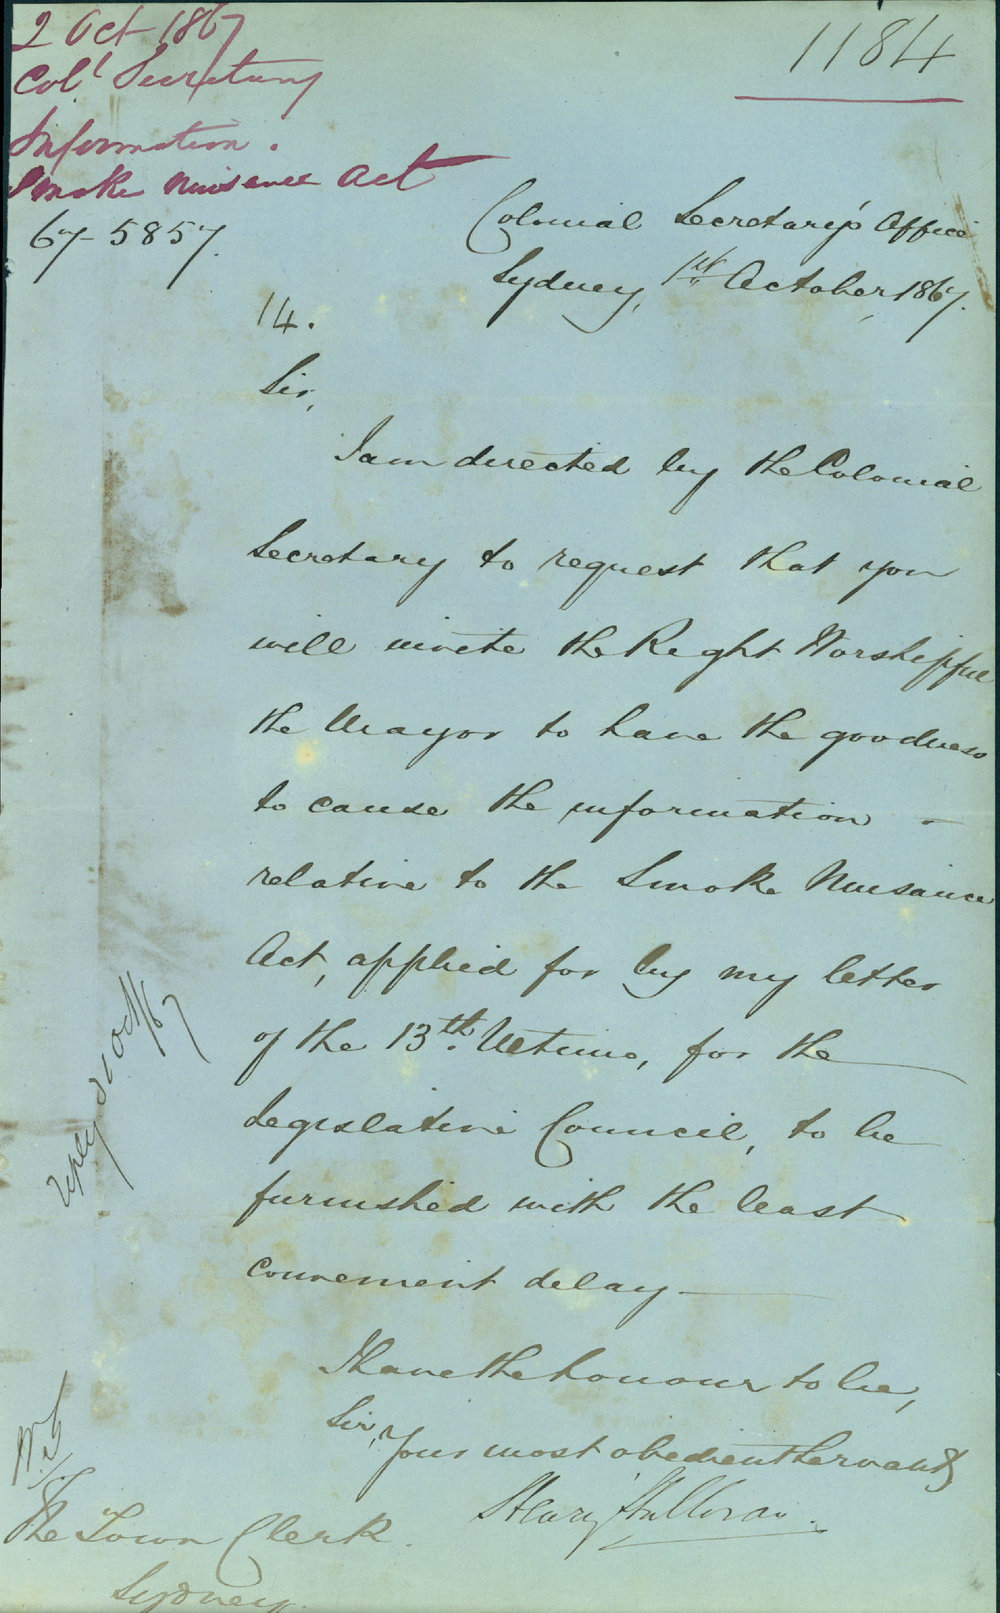 2 Oct 1867
Col.l Secretary
Information.
Smoke Nuisance Act
67-5857.
1184
Colonial Secretary's Office
Sydney, 1st October, 1867.
14.
Sir,
I am directed by the Colonial
Secretary to request that you
will invite the Right Worshipful
the Mayor to have the goodness
to cause the information -
relative to the Smoke Nuisance
Act, applied for by my letter
of the 13th. Ultimo, for the
Legislative Council, to be
furnished with the least
convenient delay.
reply d 10 Oct/67
I have the honour to be,
Sir,
Your most obedient Servant,
Henry Halloran.
The Town Clerk.
Sydney.